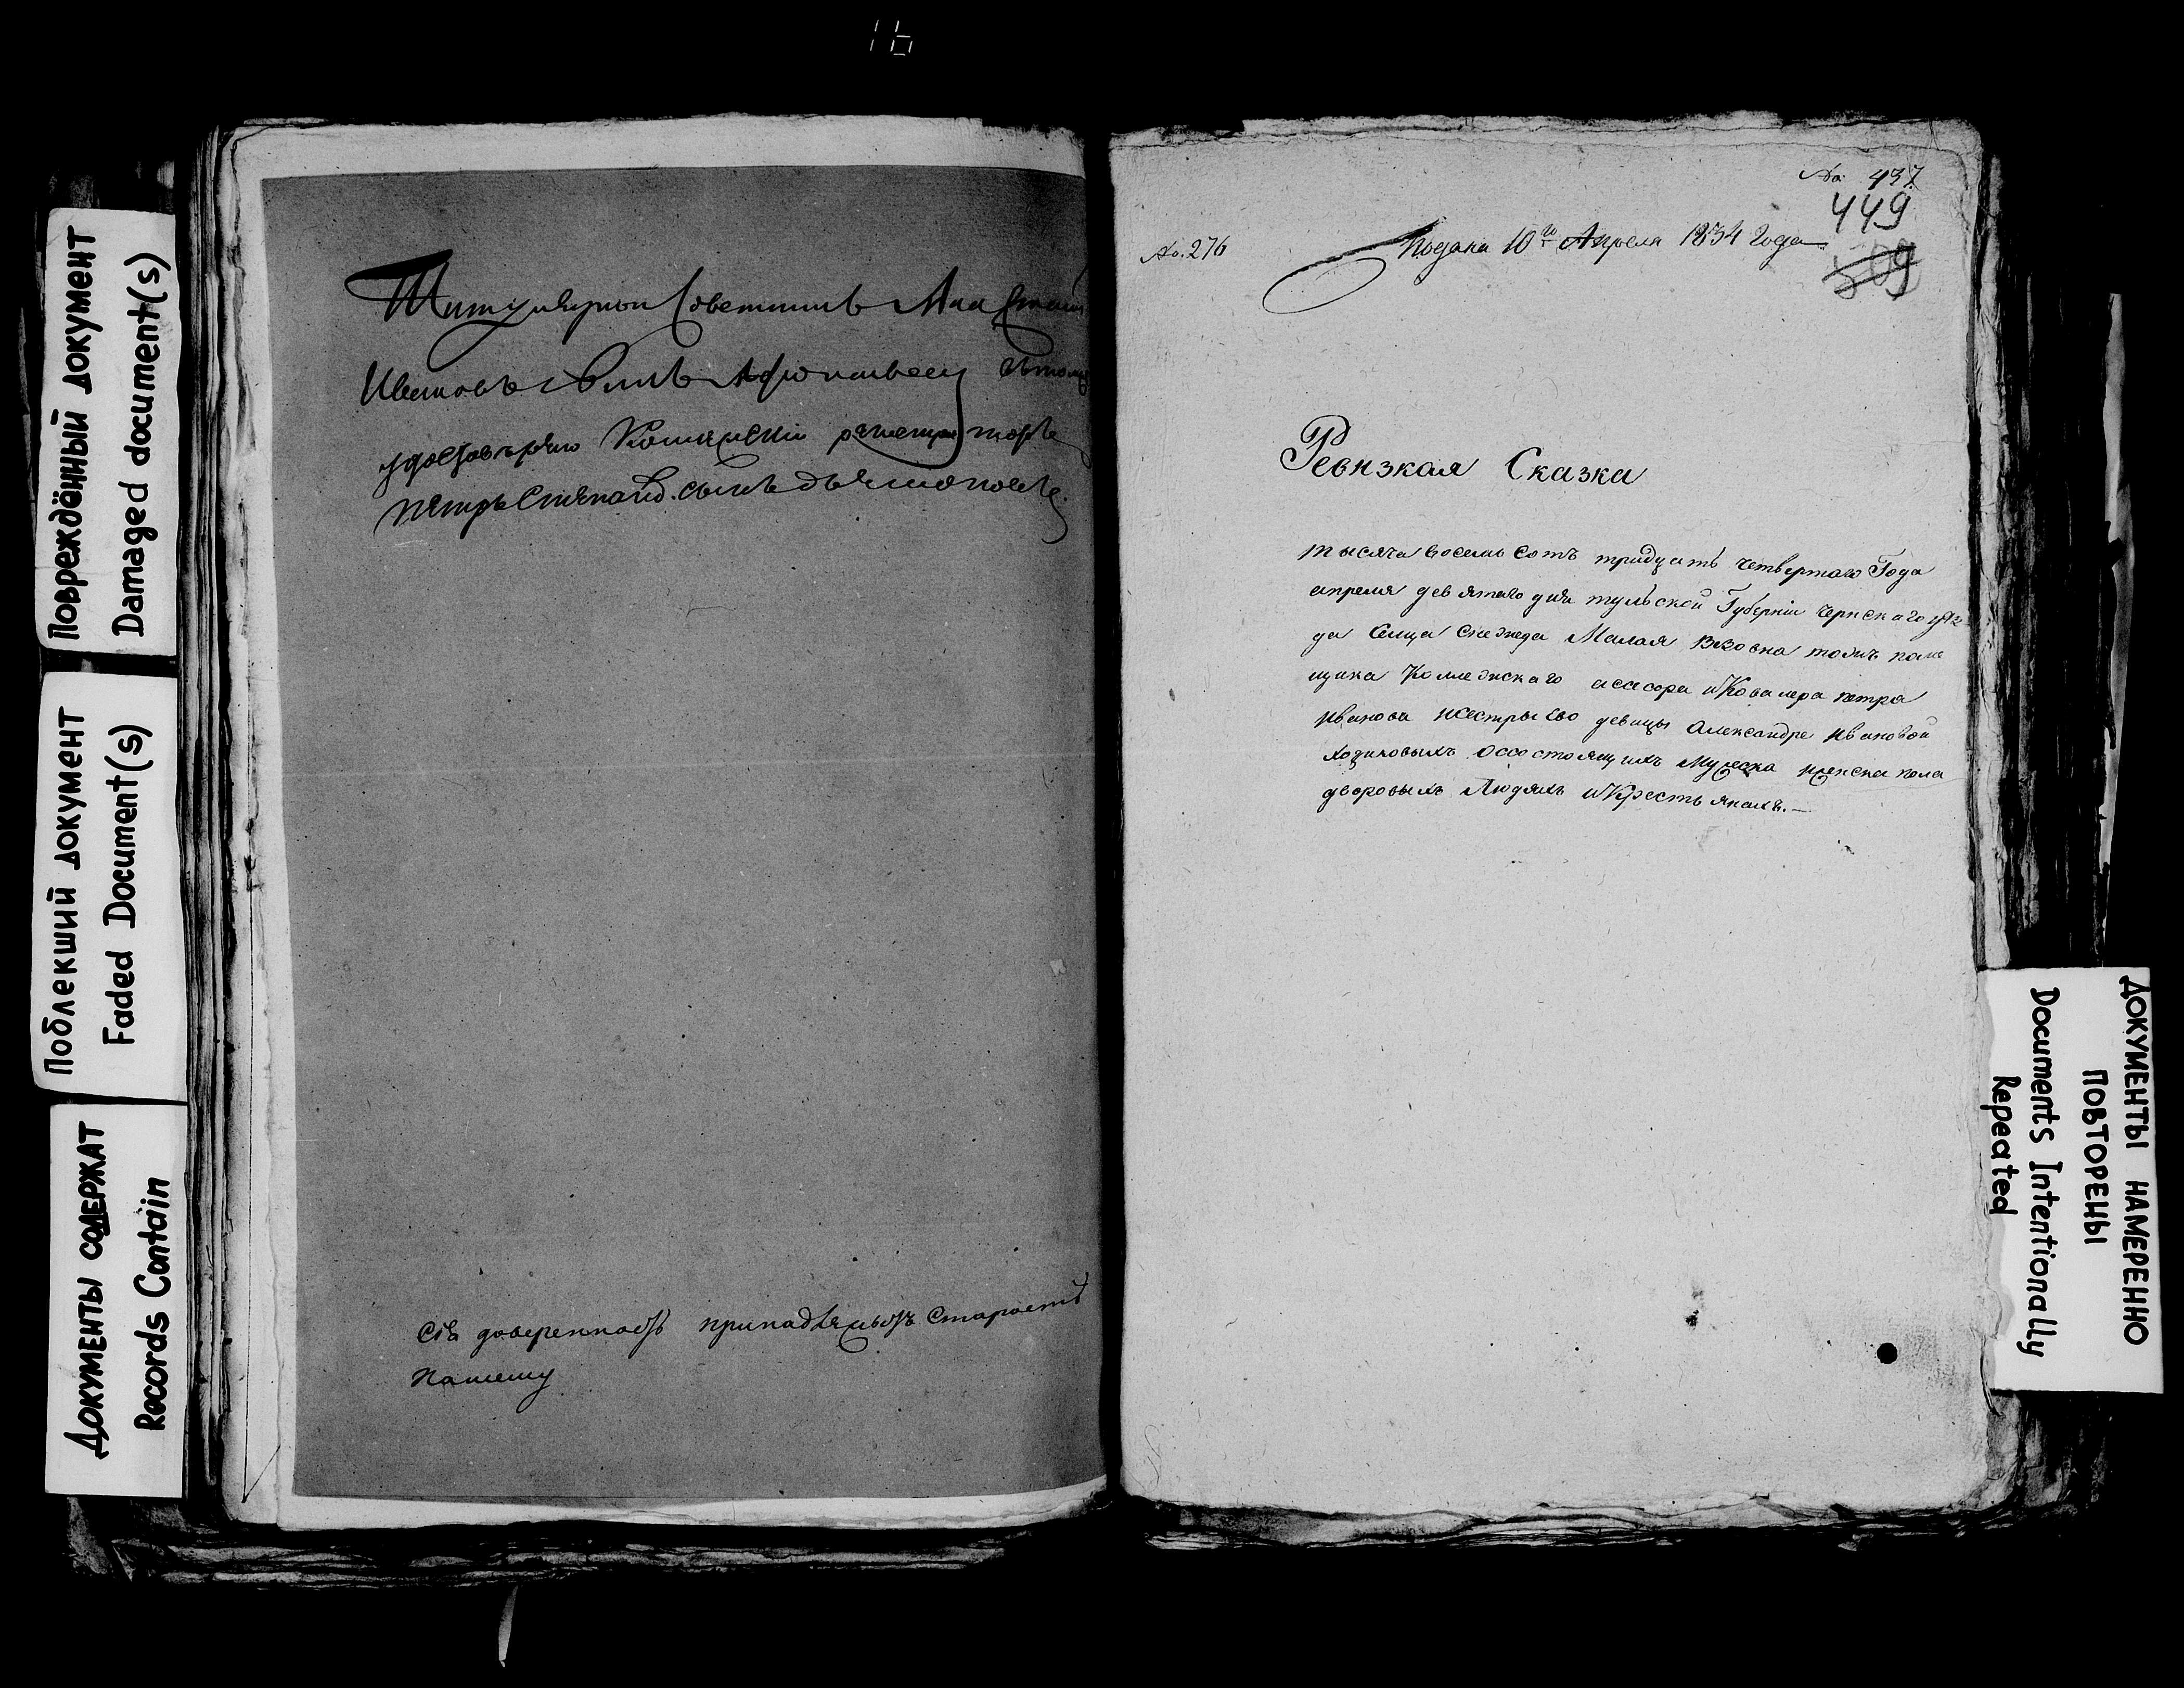 16
Повреждённый документ
Damaged document(s)
Поблекший документ
Faded Document(s)
Документы содержат
Records Contain
Титулярнои Советникъ
Ивановъ сынъ
удостовѣряю регистраторъ
Петръ Степанов. сынъ
Сія доверенность принадлежитъ Старостѣ
нашему
№ 437
449
№ 276
Подана 10го Апреля 1834 года
Ревизкая Сказка
тысяча восемь сотъ тридцать четвертаго Года
апреля девятаго дня тульской Губерніи чернскаго уѣз
да Селца Снежеда Малая тожъ поме
щика Коллежскаго асесора и Кавалера петра
иванова исестры ево девицы Александре ивановой
осостоящихъ мужеска иженска пола
дворовыхъ Людяхъ и Крестьянахъ.—
Документы намеренно
повторены
Documents Intentionally
Repeated